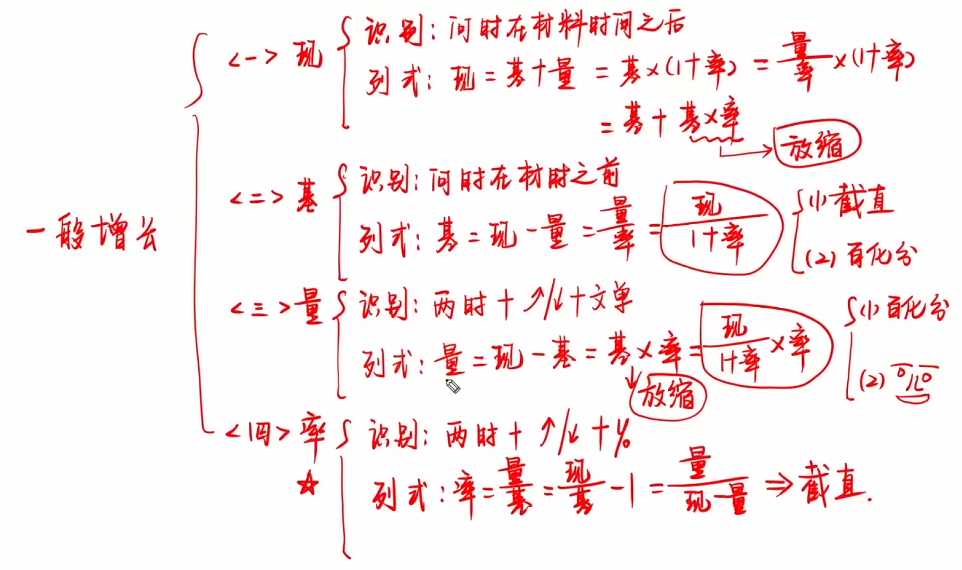 一般增长
<一> 现
识别：问时在材料时间之后
列式：现=基+量=基×(1+率)=量/率×(1+率)
=基+基×率
放缩
<二> 基
识别：问时在材时之前
列式：基=现-量=量/率=现/1+率
(1) 截直
(2) 百化分
<三> 量
识别：两时+↑/↓+文单
列式：量=现-基=基×率=现/1+率×率
放缩
(1) 百化分
(2)
<四> 率
☆
识别：两时+↑/↓+%
列式：率=量/基=现/基-1=量/现-量⇒截直.